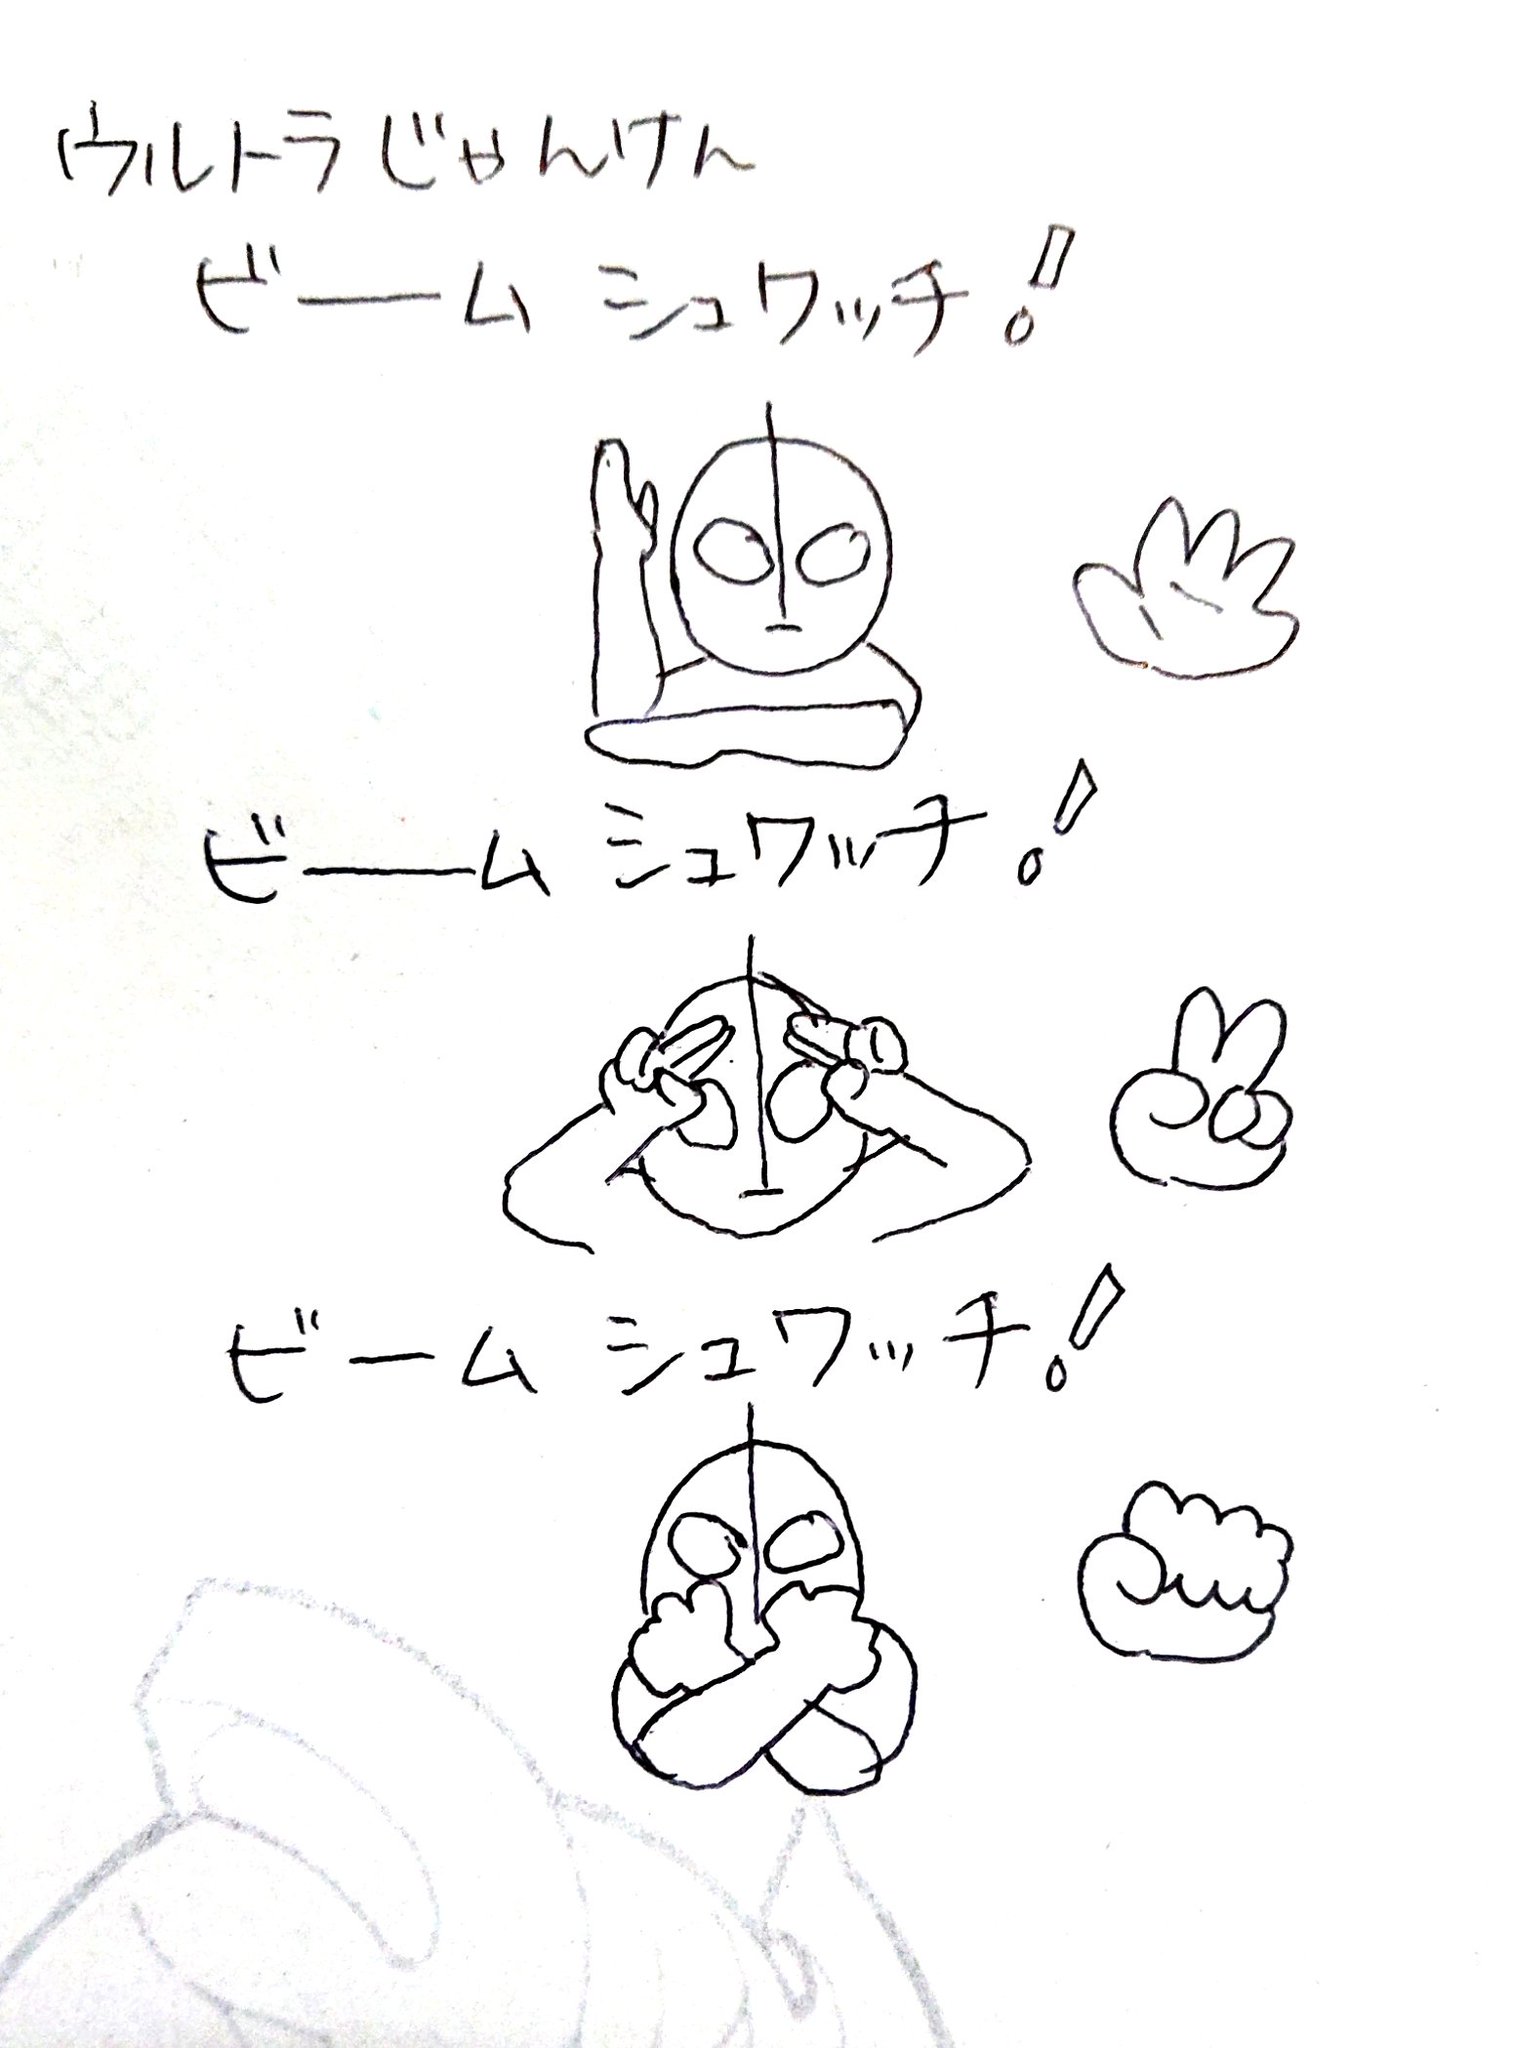 ウルトラじゃんけん
ビーム シュワッチ!
ビーム シュワッチ!
ビーム シュワッチ!